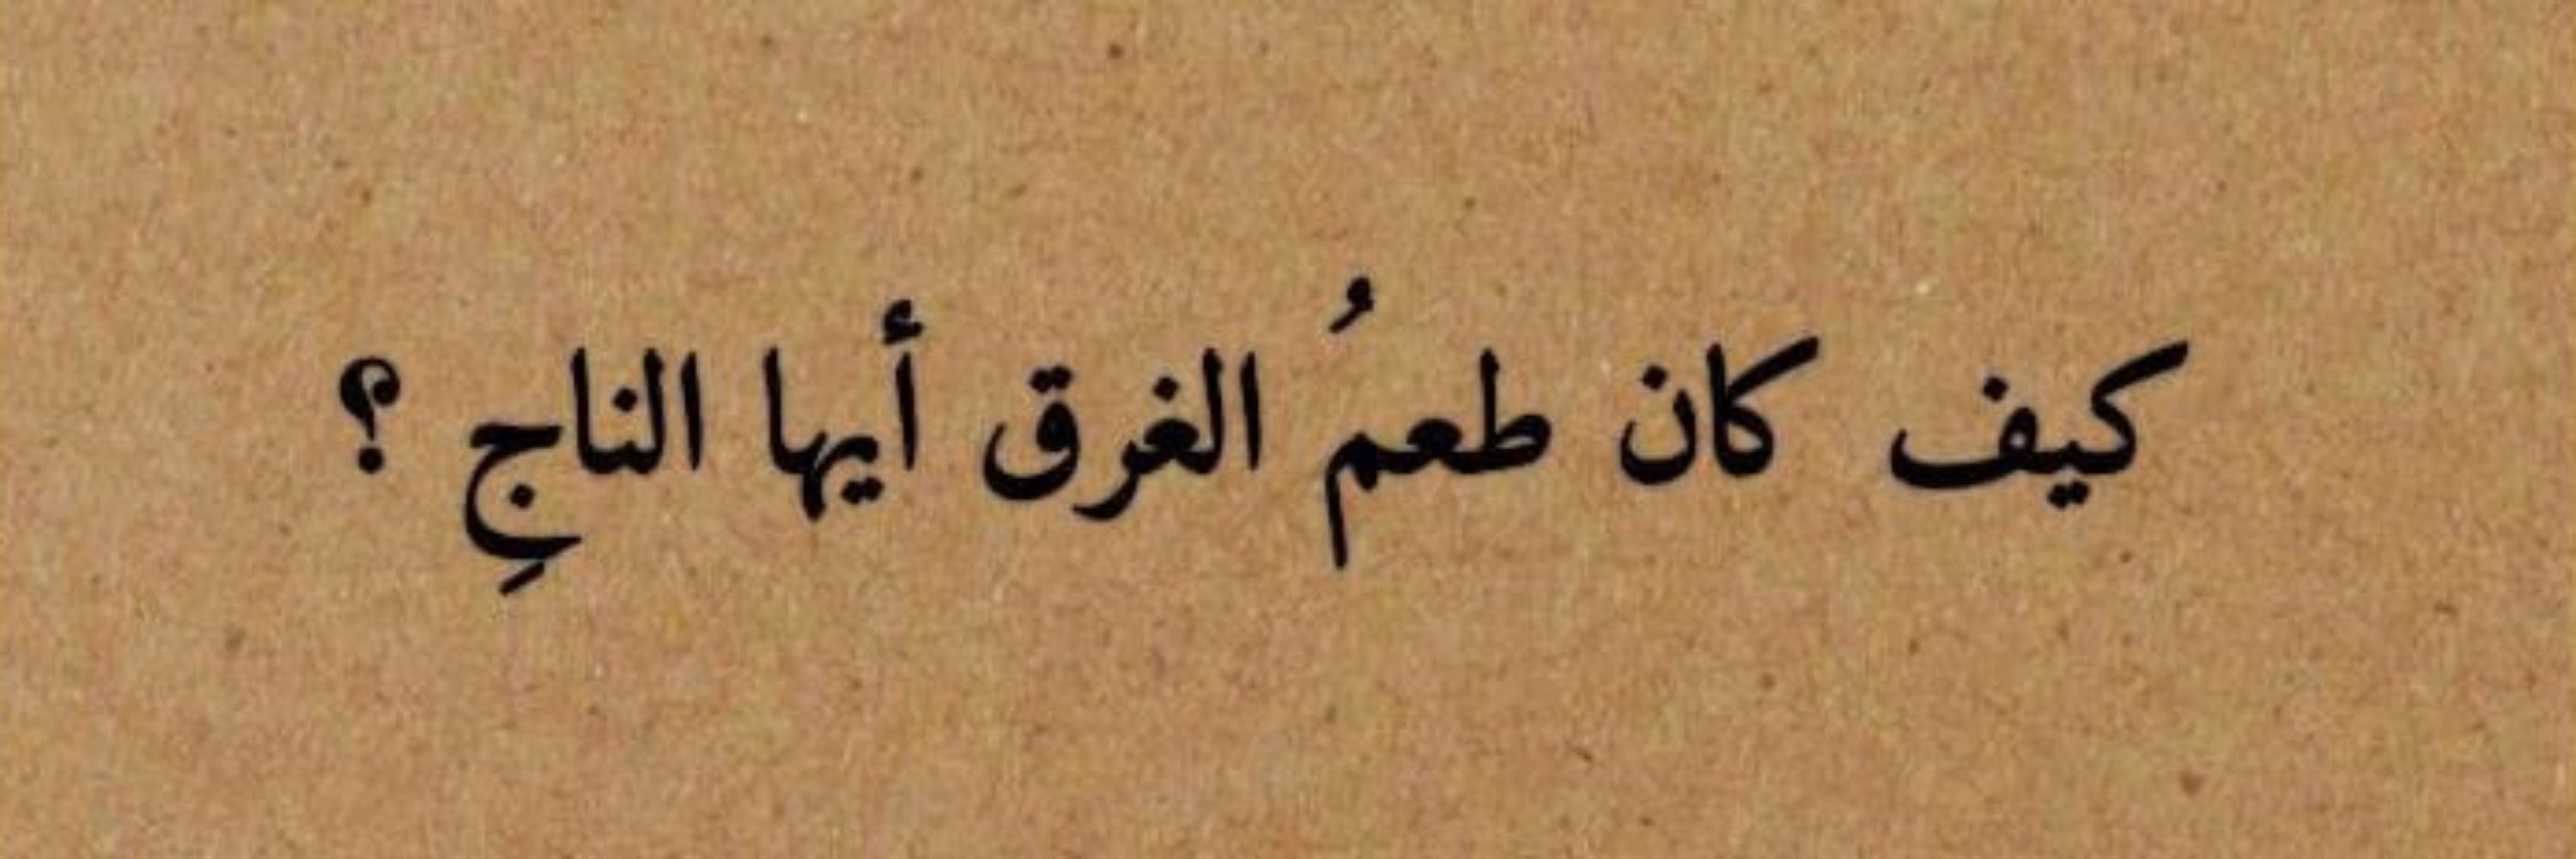 كيف كان طعمُ الغرق أيها الناجِ ؟